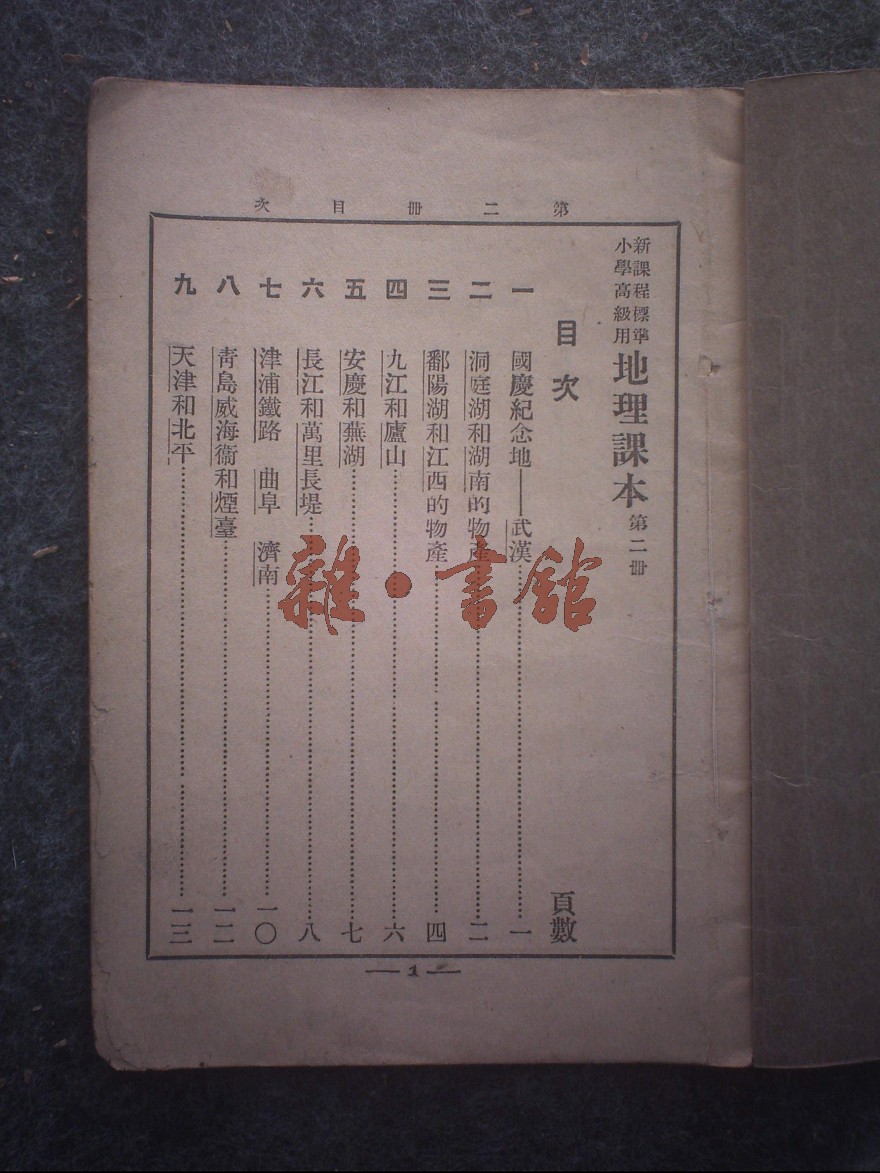 第二冊目次
新課程標準
小學高級用
地理課本 第二冊
目次 頁數
一 國慶紀念地——武漢 一
二 洞庭湖和湖南的物產 二
三 鄱陽湖和江西的物產 四
四 九江和廬山 六
五 安慶和蕪湖 七
六 長江和萬里長堤 八
七 津浦鐵路 曲阜 濟南 一〇
八 青島威海衞和煙臺 一二
九 天津和北平 一三
— 1 —
雜·書館